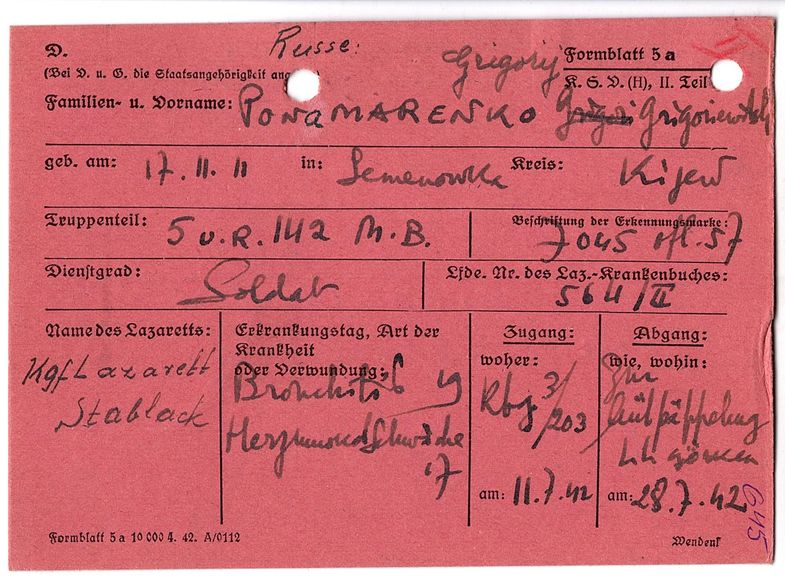 Russe:
D.
Grigorij
Formblatt 5a
(Bei V. u. G. die Staatsangehörigkeit
K. S. D. (H), II. Teil
Familien- u. Vorname: PONAMARENKO Grigori Grigoriewitsch
geb. am: 17. 11. 11 in: Semenowka Kreis: Kijew
Truppenteil: 5 u. R. 142 M. B.
Beschriftung der Erkennungsmarke:
7045 ofl. 57
Dienstgrad: Soldat
Lfde. Nr. des Laz.-Krankenbuches:
564/II
Name des Lazaretts:
Kgf Lazarett
Stablack
Erkrankungstag, Art der
Krankheit
oder Verwundung:
Bronchitis 19
Herzmuskelschwäche
17
Zugang:
woher:
Kbg 3/203
am: 11.7.42
Abgang:
wie, wohin:
Zur
Aufpäppelung
am: 28.7.42
645
Formblatt 5a 10 000 4. 42. A/0112
Wenden!